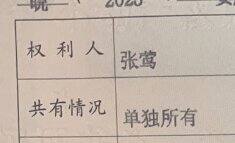 皖 ( 2025
权利人 张莺
共有情况 单独所有